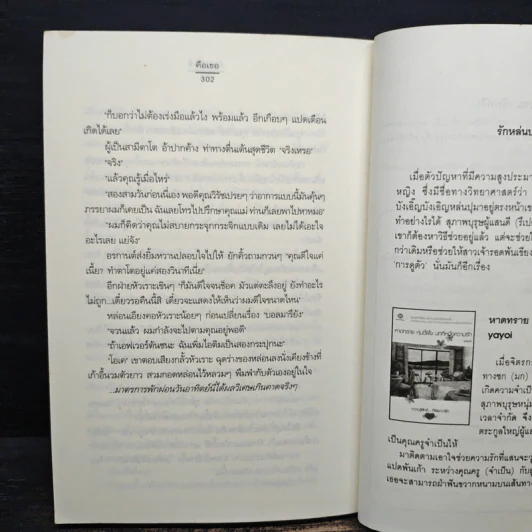 คือเธอ
302
"ก็บอกว่าไม่ต้องเร่งมือแล้วไง พร้อมแล้ว อีกเกือบๆ แปดเดือน
เกิดได้เลย"
ผู้เป็นสามีตาโต อ้าปากค้าง ท่าทางตื่นเต้นสุดชีวิต "จริงเหรอ"
"จริง"
"แล้วคุณรู้เมื่อไหร่"
"สองสามวันก่อนนี้เอง พอดีคุณวิรัชเปรยๆ ว่าอาการแบบนี้มันคุ้นๆ
ภรรยาผมก็เคยเป็น ฉันเลยโทรไปปรึกษาคุณแม่ ท่านก็เลยพาไปหาหมอ"
"ผมก็คิดว่าคุณไม่สบายกระจุกกระจิกแบบเดิม เลยไม่ได้เอะใจ
อะไรเลย แย่จัง"
อรกานต์ส่งยิ้มหวานปลอบใจไปให้ ยักคิ้วถามกวนๆ "คุณดีใจแค่
เนี้ย? ทำตาโตอยู่แค่สองวินาทีเนี่ย"
อีกฝ่ายหัวเราะเขินๆ "ก็มันดีใจจนช็อค มัวแต่ตะลึงอยู่ ยังทำอะไร
ไม่ถูก...เดี๋ยวรอคืนนี้สิ เดี๋ยวจะแสดงให้เห็นว่าผมดีใจขนาดไหน"
หล่อนเอียงคอหัวเราะน้อยๆ ก่อนเปลี่ยนเรื่อง "บอลมารึยัง"
"จวนแล้ว ผมกำลังจะไปตามคุณอยู่พอดี"
"ถ้าเอฟเวอร์ตันชนะ ฉันเพิ่มไอติมเป็นสองกระปุกนะ"
"โอเค" เขาตอบเสียงกลั้วหัวเราะ ฉุดร่างของหล่อนลงนั่งเคียงข้างที่
เก้าอี้นวมตัวยาว สวมกอดหล่อนไว้หลวมๆ พึมพำกับตัวเองอยู่ในใจ
...มาตรการพักผ่อนวันอาทิตย์นี้ได้ผลวิเศษเกินคาดจริงๆ
รักหล่น
เมื่อตัวปัญหาที่มีความสูงประมา
หญิง ซึ่งมีชื่อทางวิทยาศาสตร์ว่า
บังเอิ๊ญบังเอิญหล่นปุมาอยู่ตรงหน้าเข
ทำอย่างไรได้ สุภาพบุรุษผู้แสนดี
เขาก็ต้องหาวิธีช่วยอยู่แล้ว แต่จะช่วยใ
กว่าเดิมหรือช่วยให้สาวเจ้ารอดพ้นเรื่อง
'การดูตัว' นั่นมันก็อีกเรื่อง
หาดทราย
yayoi
เมื่อจิตรก
ทางซก (มก)
เกิดความจำเป็
สุภาพบุรุษหนุ่ม
เวลาจำกัด จึง
ตระกูลใหญ่ผู้แ
เป็นคุณครูจำเป็นให้
มาติดตามเอาใจช่วยความรักที่แสนจะวุ
แปดพันเก้า ระหว่างคุณครู (จำเป็น) กับลู
เธอจะสามารถฝ่าฟันขวากหนามบนเส้นทาง